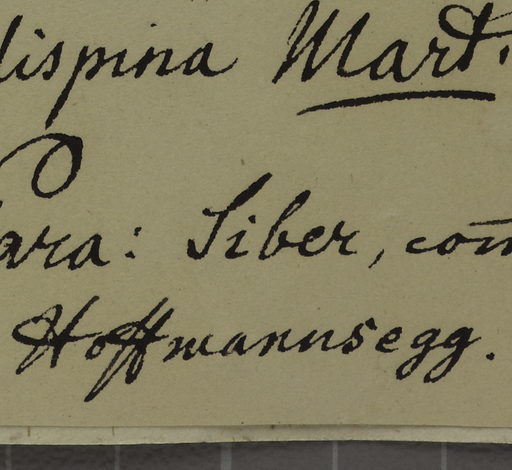 lispina Mart.
Para: Siber, com
Hoffmannsegg.